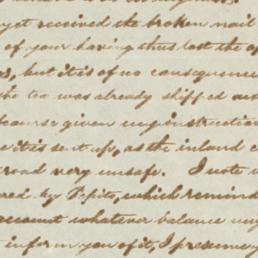 yet received the broken nail
of your having thus lost the o
, but it is of no consequence
the tea was already shipped
course given my instruction
it is sent up, as the inland c
road very unsafe. I note
by Pepito, which remind
account whatever balance
inform you of it, I presume